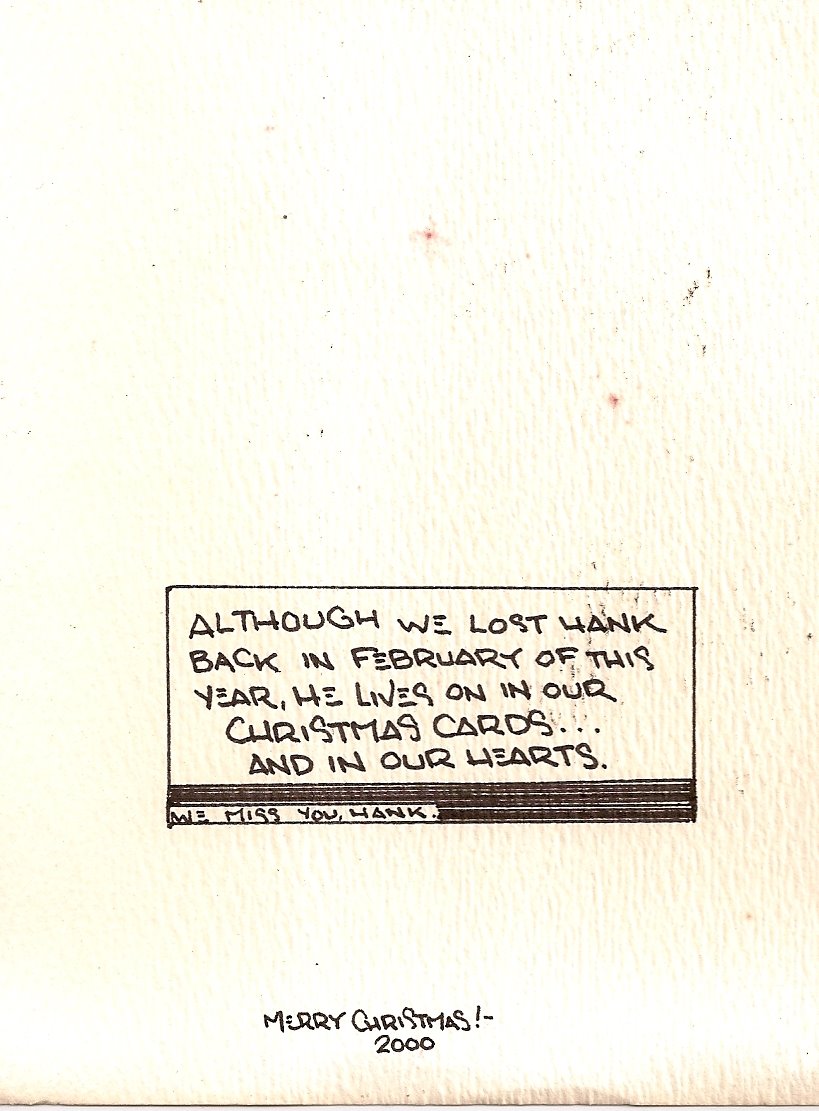 ALTHOUGH WE LOST HANK
BACK IN FEBRUARY OF THIS
YEAR, HE LIVES ON IN OUR
CHRISTMAS CARDS...
AND IN OUR HEARTS.
WE MISS YOU, HANK.
MERRY CHRISTMAS!-
2000